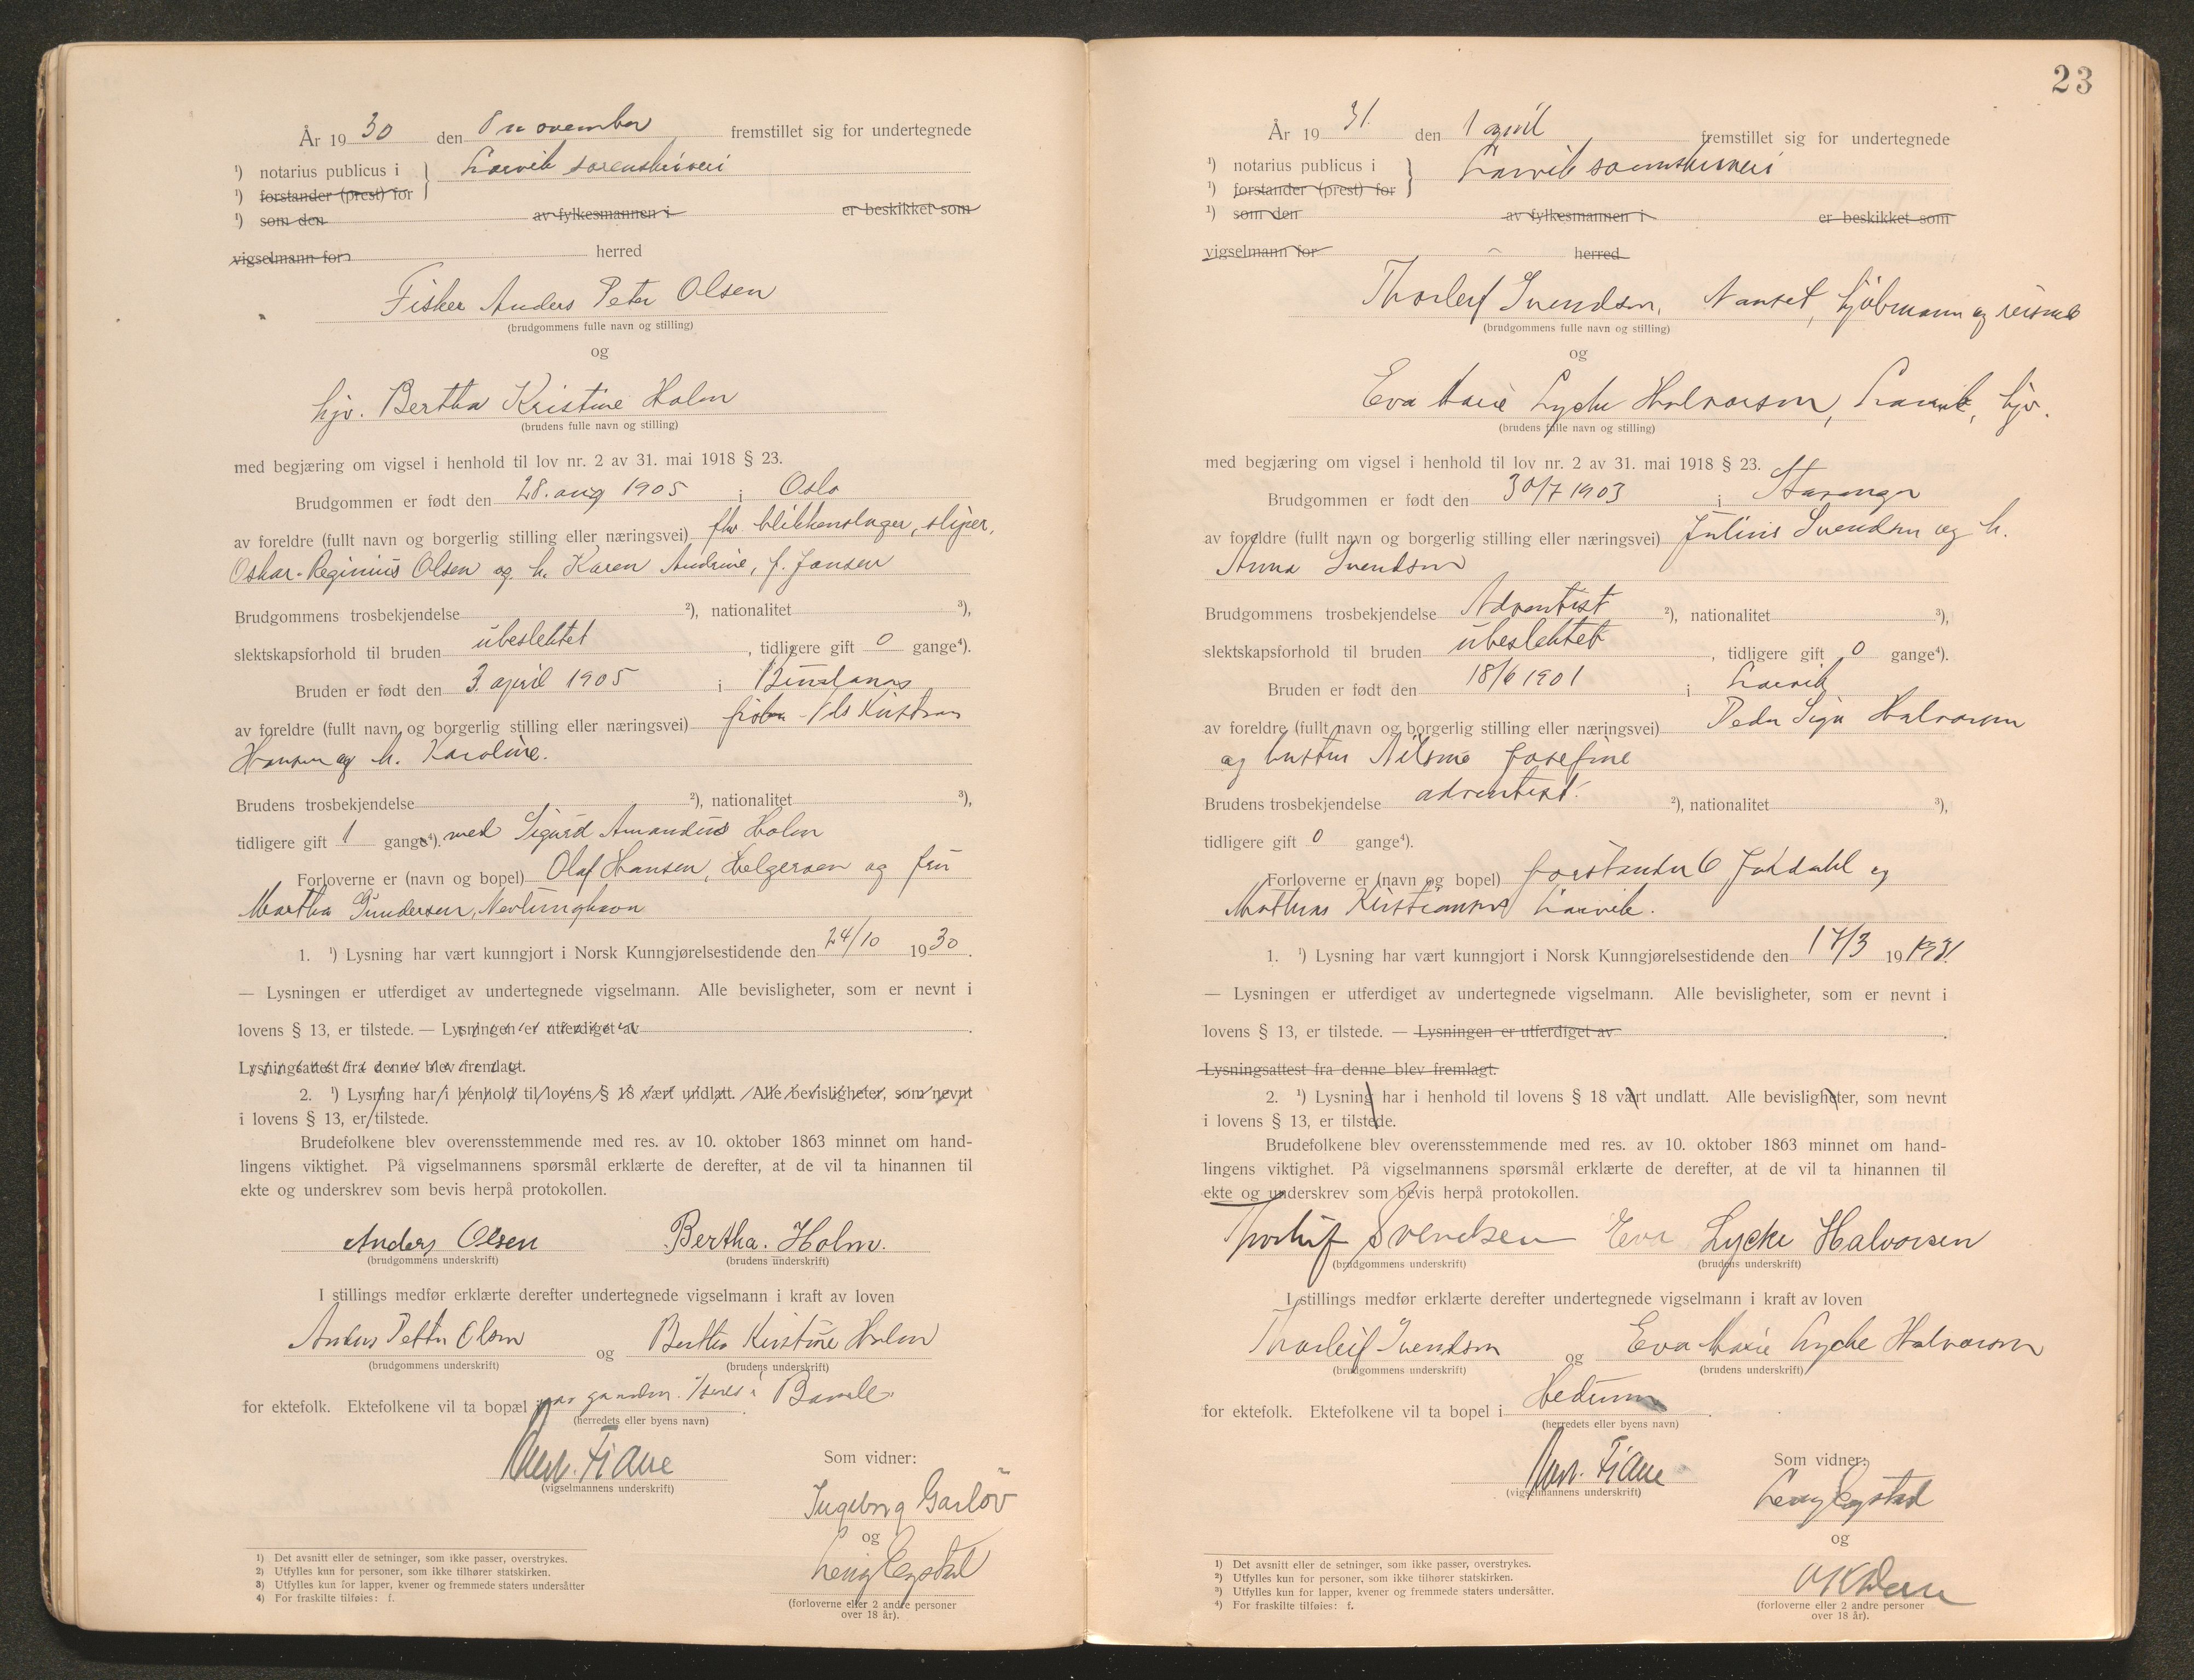 År 1930 den 8 november fremstillet sig for undertegnede
¹) notarius publicus i } Larvik sorenskriveri
¹) forstander (prest) for
¹) som den av fylkesmannen i er beskikket som
vigselmann for herred
Fisker Anders Peter Olsen
(brudgommens fulle navn og stilling)
og
hjv. Bertha Kristine Holm
(brudens fulle navn og stilling)
med begjæring om vigsel i henhold til lov nr. 2 av 31. mai 1918 § 23.
Brudgommen er født den 28. aug 1905 i Oslo
av foreldre (fullt navn og borgerlig stilling eller næringsvei) fhv blikkenslager, sliper,
Oskar Reginius Olsen og h. Karen Andrine, f. Jansen
Brudgommens trosbekjendelse ²), nationalitet ³),
slektskapsforhold til bruden ubeslektet, tidligere gift 0 gange⁴).
Bruden er født den 3. april 1905 i
av foreldre (fullt navn og borgerlig stilling eller næringsvei) Nils Kristian
Hansen og h. Karoline.
Brudens trosbekjendelse ²), nationalitet ³),
tidligere gift 1 gange⁴). med Sigurd Amandus Holm
Forloverne er (navn og bopel) Olaf Hansen, Helgeroen og fru
Martha Gundersen, Nevlunghavn
1. ¹) Lysning har vært kunngjort i Norsk Kunngjørelsestidende den 24/10 1930.
— Lysningen er utferdiget av undertegnede vigselmann. Alle bevisligheter, som er nevnt i
lovens § 13, er tilstede. — Lysningen er utferdiget av .
Lysningsattest fra denne blev fremlagt.
2. ¹) Lysning har i henhold til lovens § 18 vært undlatt. Alle bevisligheter, som nevnt
i lovens § 13, er tilstede.
Brudefolkene blev overensstemmende med res. av 10. oktober 1863 minnet om hand-
lingens viktighet. På vigselmannens spørsmål erklærte de derefter, at de vil ta hinannen til
ekte og underskrev som bevis herpå protokollen.
Anders Olsen Bertha. Holm.
(brudgommens underskrift) (brudens underskrift)
I stillings medfør erklærte derefter undertegnede vigselmann i kraft av loven
Anders Petter Olsen og Bertha Kristine Holm
(brudgommens underskrift) (brudens underskrift)
for ektefolk. Ektefolkene vil ta bopæl i Bamle
(herredets eller byens navn)
Fiane
(vigselmannens underskrift)
Som vidner:
Ingeborg Garløv
og
Egstad
(forloverne eller 2 andre personer
over 18 år).
1) Det avsnitt eller de setninger, som ikke passer, overstrykes.
2) Utfylles kun for personer, som ikke tilhører statskirken.
3) Utfylles kun for lapper, kvener og fremmede staters undersåtter
4) For fraskilte tilføies: f.
23
År 1931. den 1 april fremstillet sig for undertegnede
¹) notarius publicus i } Larvik sorenskriveri
¹) forstander (prest) for
¹) som den av fylkesmannen i er beskikket som
vigselmann for herred
Thorleif Svendsen, Nanset, kjøbmann og reisende
(brudgommens fulle navn og stilling)
og
Eva Marie Lycke Halvorsen, Larvik, hjv.
(brudens fulle navn og stilling)
med begjæring om vigsel i henhold til lov nr. 2 av 31. mai 1918 § 23.
Brudgommen er født den 30/7 1903 i Stavanger
av foreldre (fullt navn og borgerlig stilling eller næringsvei) Julius Svendsen og h.
Anna Svendsen
Brudgommens trosbekjendelse Adventist ²), nationalitet ³),
slektskapsforhold til bruden ubeslektet, tidligere gift 0 gange⁴).
Bruden er født den 18/6 1901 i Larvik
av foreldre (fullt navn og borgerlig stilling eller næringsvei) Peder Halvorsen
og hustru Josefine
Brudens trosbekjendelse adventist. ²), nationalitet ³),
tidligere gift 0 gange⁴).
Forloverne er (navn og bopel) forstander og
Mathias Kristiansen Larvik.
1. ¹) Lysning har vært kunngjort i Norsk Kunngjørelsestidende den 17/3 19 1931
— Lysningen er utferdiget av undertegnede vigselmann. Alle bevisligheter, som er nevnt i
lovens § 13, er tilstede. — Lysningen er utferdiget av .
Lysningsattest fra denne blev fremlagt.
2. ¹) Lysning har i henhold til lovens § 18 vært undlatt. Alle bevisligheter, som nevnt
i lovens § 13, er tilstede.
Brudefolkene blev overensstemmende med res. av 10. oktober 1863 minnet om hand-
lingens viktighet. På vigselmannens spørsmål erklærte de derefter, at de vil ta hinannen til
ekte og underskrev som bevis herpå protokollen.
Thorleif Svendsen Eva Lycke Halvorsen
(brudgommens underskrift) (brudens underskrift)
I stillings medfør erklærte derefter undertegnede vigselmann i kraft av loven
Thorleif Svendsen og Eva Marie Lycke Halvorsen
(brudgommens underskrift) (brudens underskrift)
for ektefolk. Ektefolkene vil ta bopel i Hedrum.
(herredets eller byens navn)
Fiane
(vigselmannens underskrift)
Som vidner:
Egstad
og
(forloverne eller 2 andre personer
over 18 år).
1) Det avsnitt eller de setninger, som ikke passer, overstrykes.
2) Utfylles kun for personer, som ikke tilhører statskirken.
3) Utfylles kun for lapper, kvener og fremmede staters undersåtter.
4) For fraskilte tilføies: f.